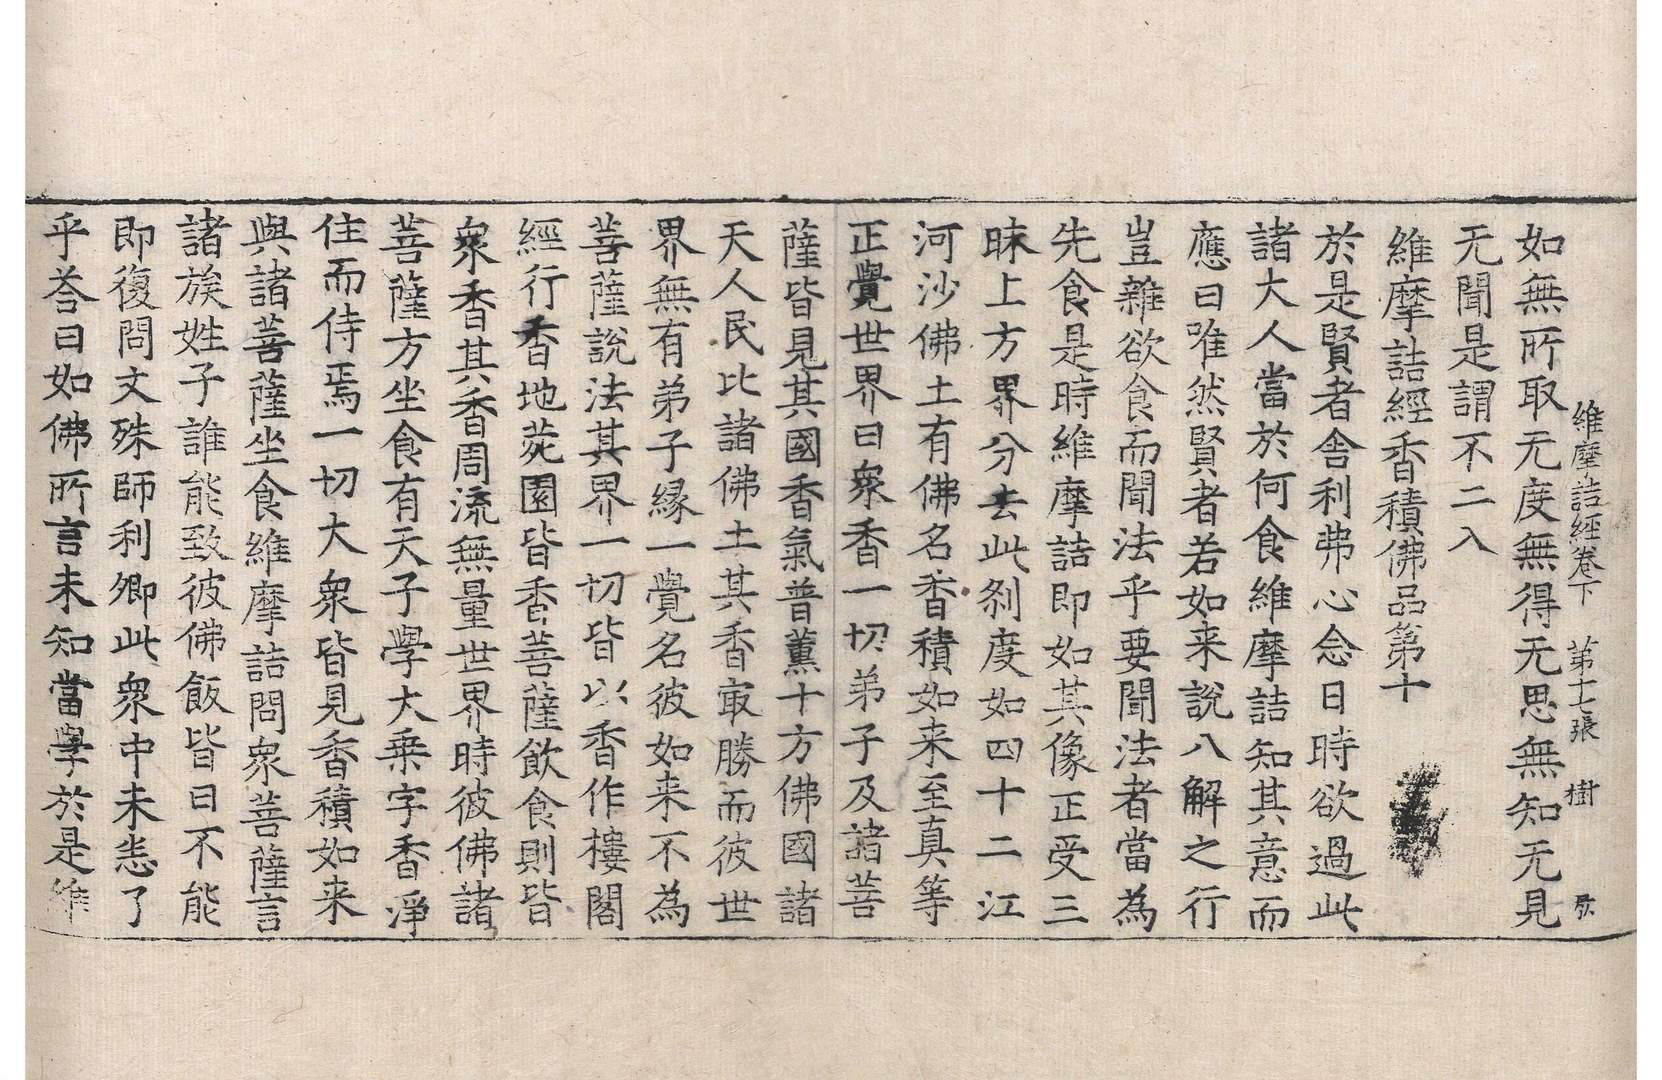 維摩詰経卷下 第十七張 樹
如無所取无度無得无思無知无見
无聞是謂不二入
維摩詰經香積佛品第十
於是賢者舍利弗心念日時欲過此
諸大人當於何食維摩詰知其意而
應曰唯然賢者若如来說八解之行
豈雜欲食而聞法乎要聞法者當為
先食是時維摩詰即如其像正受三
昧上方界分去此刹度如四十二江
河沙佛土有佛名香積如来至真等
正覺世界曰衆香一切弟子及諸菩
薩皆見其國香氣普薰十方佛國諸
天人民比諸佛土其香㝡勝而彼世
界無有弟子緣一覺名彼如来不為
菩薩說法其界一切皆以香作樓閣
經行香地菀園皆香菩薩飲食則皆
衆香其香周流無量世界時彼佛諸
菩薩方坐食有天子學大乗字香淨
住而侍焉一切大衆皆見香積如来
與諸菩薩坐食維摩詰問衆菩薩言
諸族姓子誰能致彼佛飯皆曰不能
即復問文殊師利卿此衆中未悉了
乎荅曰如佛所言未知當學於是維